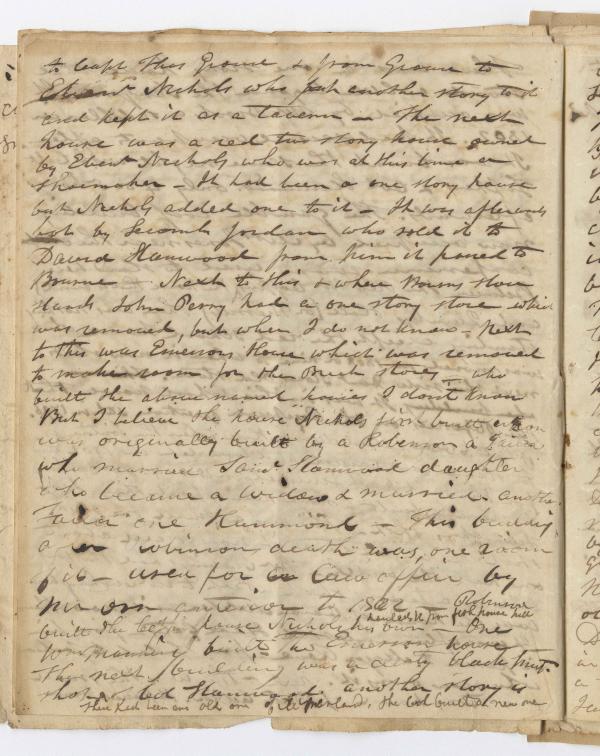 to Capt Thos Grouse & from Grouse to
Ebenr Nichols who put another story to it
and kept it as a tavern — The next
house was a red two story house owned
by Ebenr Nichols who was at this time a
Shoemaker — It had been a one story house
but Nichols added one to it — It was afterwards
by Jordan who sold it to
David Hanwood from him it passed to
Bourne — Next to this & where Bourns store
stands John Perry had a one story store which
was removed, but when I do not know — Next
to this was Emersons House which was removed
to make room for the Brick stores — who
built the above named houses I dont know
But I believe the house Nichols first built on
was originally built by a Robinson a
who married Hanwood daughter
who became a widow & married another
one Hammond — This building
Robinsons death was one room
used for a Law office by
Mr anterior to — Robinson
built the house Nichols his — One
built the Emerson house
The next building was a dirty black
shop of Hanwood. another story is
There had been one old one of he built a new one